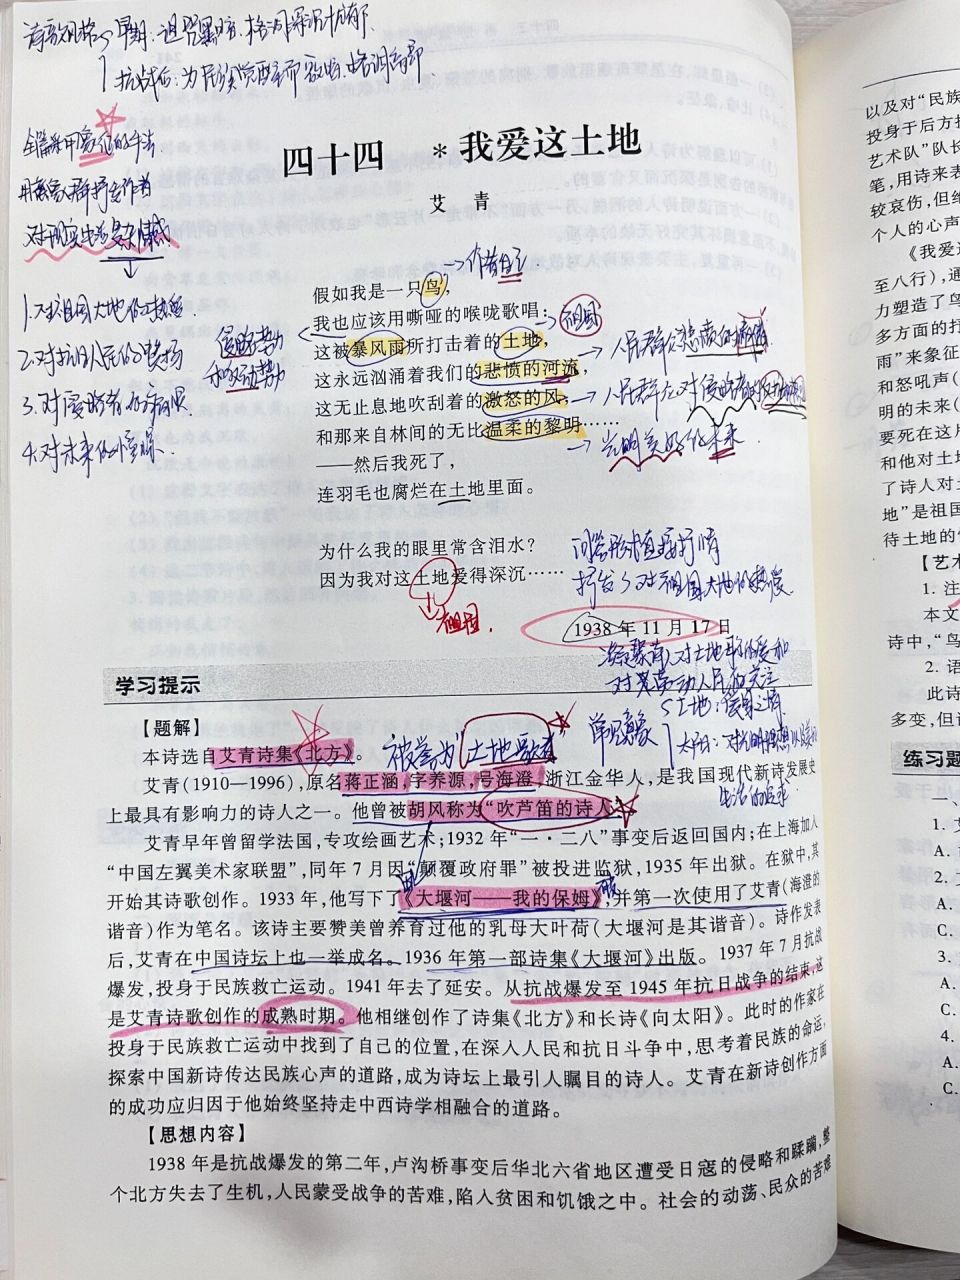 诗歌风格 早期:诅咒黑暗、格调深沉忧郁
抗战后:为民族觉醒而
全篇采用象征的手法
作者
1.对祖国大地的热爱
2.对抗日人民的赞扬
3.对侵略者的
4.对未来的憧憬
四十四 *我爱这土地
艾青
→作者自己
假如我是一只鸟,
我也应该用嘶哑的喉咙歌唱:
→祖国
这被暴风雨所打击着的土地,
侵略势力
→人民群众悲愤的
这永远汹涌着我们的悲愤的河流,
这无止息地吹刮着的激怒的风,
→人民群众对侵略者的
和那来自林间的无比温柔的黎明……
→光明美好的未来
——然后我死了,
连羽毛也腐烂在土地里面。
为什么我的眼里常含泪水?
因为我对这土地爱得深沉……
→祖国
问答形式直接抒情
抒发了对祖国大地的热爱
1938 年 11 月 17 日
凝聚着对土地
对劳动人民
学习提示
【题解】
本诗选自艾青诗集《北方》。
被誉为“土地歌者”
常见意象
土地:
太阳:
艾青(1910—1996),原名蒋正涵,字养源,号海澄,浙江金华人,是我国现代新诗发展史
上最具有影响力的诗人之一。他曾被胡风称为“吹芦笛的诗人”。
生活的追求
艾青早年曾留学法国,专攻绘画艺术;1932 年“一·二八”事变后返回国内;在上海加入
“中国左翼美术家联盟”,同年 7 月因“颠覆政府罪”被投进监狱,1935 年出狱。在狱中,其
开始其诗歌创作。1933 年,他写下了《大堰河——我的保姆》,并第一次使用了艾青(海澄的
谐音)作为笔名。该诗主要赞美曾养育过他的乳母大叶荷(大堰河是其谐音)。诗作发表
后,艾青在中国诗坛上也一举成名。1936 年第一部诗集《大堰河》出版。1937 年 7 月抗战
爆发,投身于民族救亡运动。1941 年去了延安。从抗战爆发至 1945 年抗日战争的结束,这
是艾青诗歌创作的成熟时期。他相继创作了诗集《北方》和长诗《向太阳》。此时的作家在
投身于民族救亡运动中找到了自己的位置,在深入人民和抗日斗争中,思考着民族的命运,
探索中国新诗传达民族心声的道路,成为诗坛上最引人瞩目的诗人。艾青在新诗创作方面
的成功应归因于他始终坚持走中西诗学相融合的道路。
【思想内容】
1938 年是抗战爆发的第二年,卢沟桥事变后华北六省地区遭受日寇的侵略和蹂躏,整
个北方失去了生机,人民蒙受战争的苦难,陷入贫困和饥饿之中。社会的动荡、民众的苦难
以及对“民族
投身于后方
艺术队”队长
笔,用诗来表
较哀伤,但
个人的心声
《我爱这
至八行),通
力塑造了鸟
多方面的
雨”来象征
和怒吼声(
明的未来(
要死在这片
和他对土地
了诗人对土
地”是祖国
待土地的
【艺术
1. 注
本文
诗中,“鸟
2. 语
此诗
多变,但
练习题
一、
1. 艾
A.
C.
2.
A.
C.
3.
A.
C.
4.
A.
C.